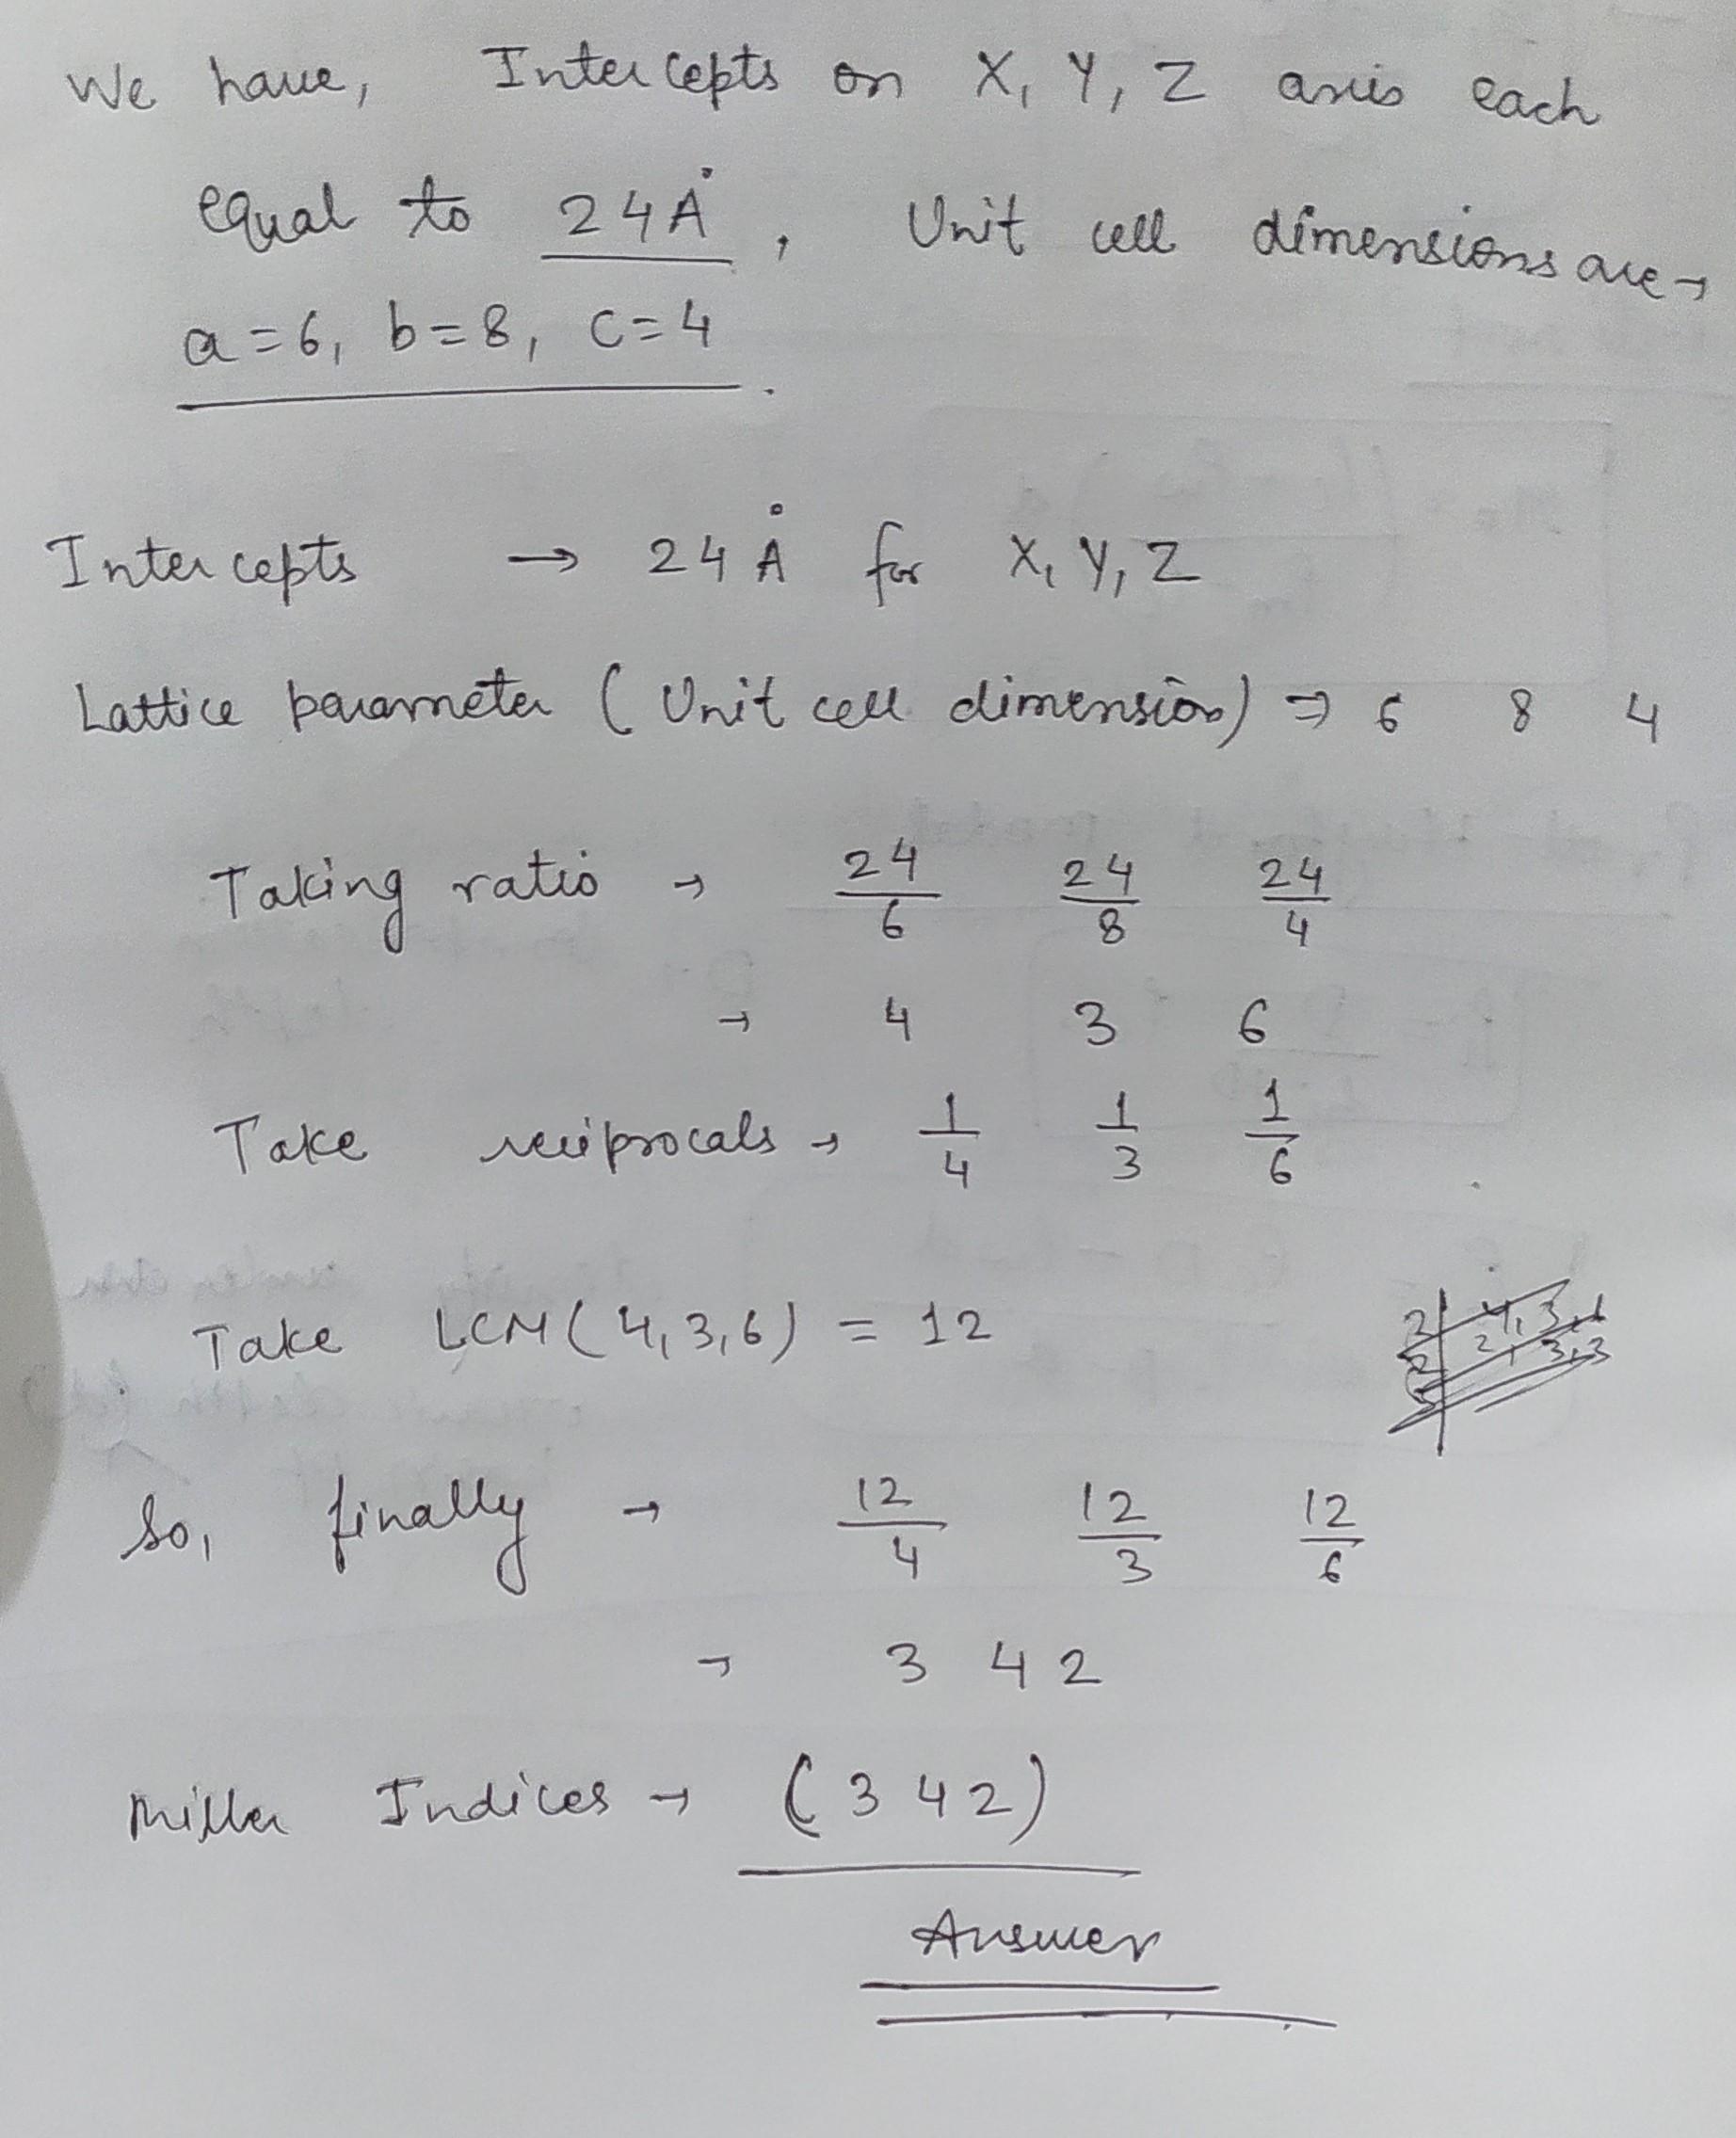 We have, Intercepts on X, Y, Z axis each
equal to 24Å, Unit cell dimensions are →
a=6, b=8, c=4.
Intercepts → 24Å for X, Y, Z
Lattice parameter (Unit cell dimension) ⇒ 6 8 4
Taking ratio → 24/6 24/8 24/4
→ 4 3 6
Take reciprocals → 1/4 1/3 1/6
Take LCM(4,3,6) = 12
So, finally → 12/4 12/3 12/6
→ 3 4 2
Miller Indices → (3 4 2)
Answer